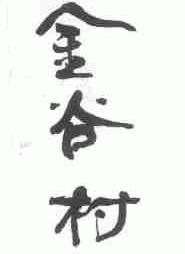 金谷村